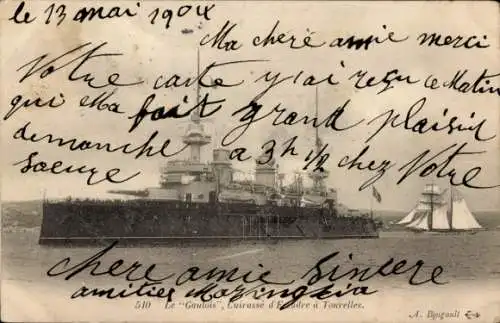 le 13 mai 1904
Ma cherè amie merci
Votre carte y'ai reçu ce Matin
qui Ma fait grand plaisir
demanche a 3h ½ chez Votre
soeure
chere amie Sincere
amities
510 - Le "Gaulois", Cuirassé d'Escadre à Tourelles.
A. Bougault